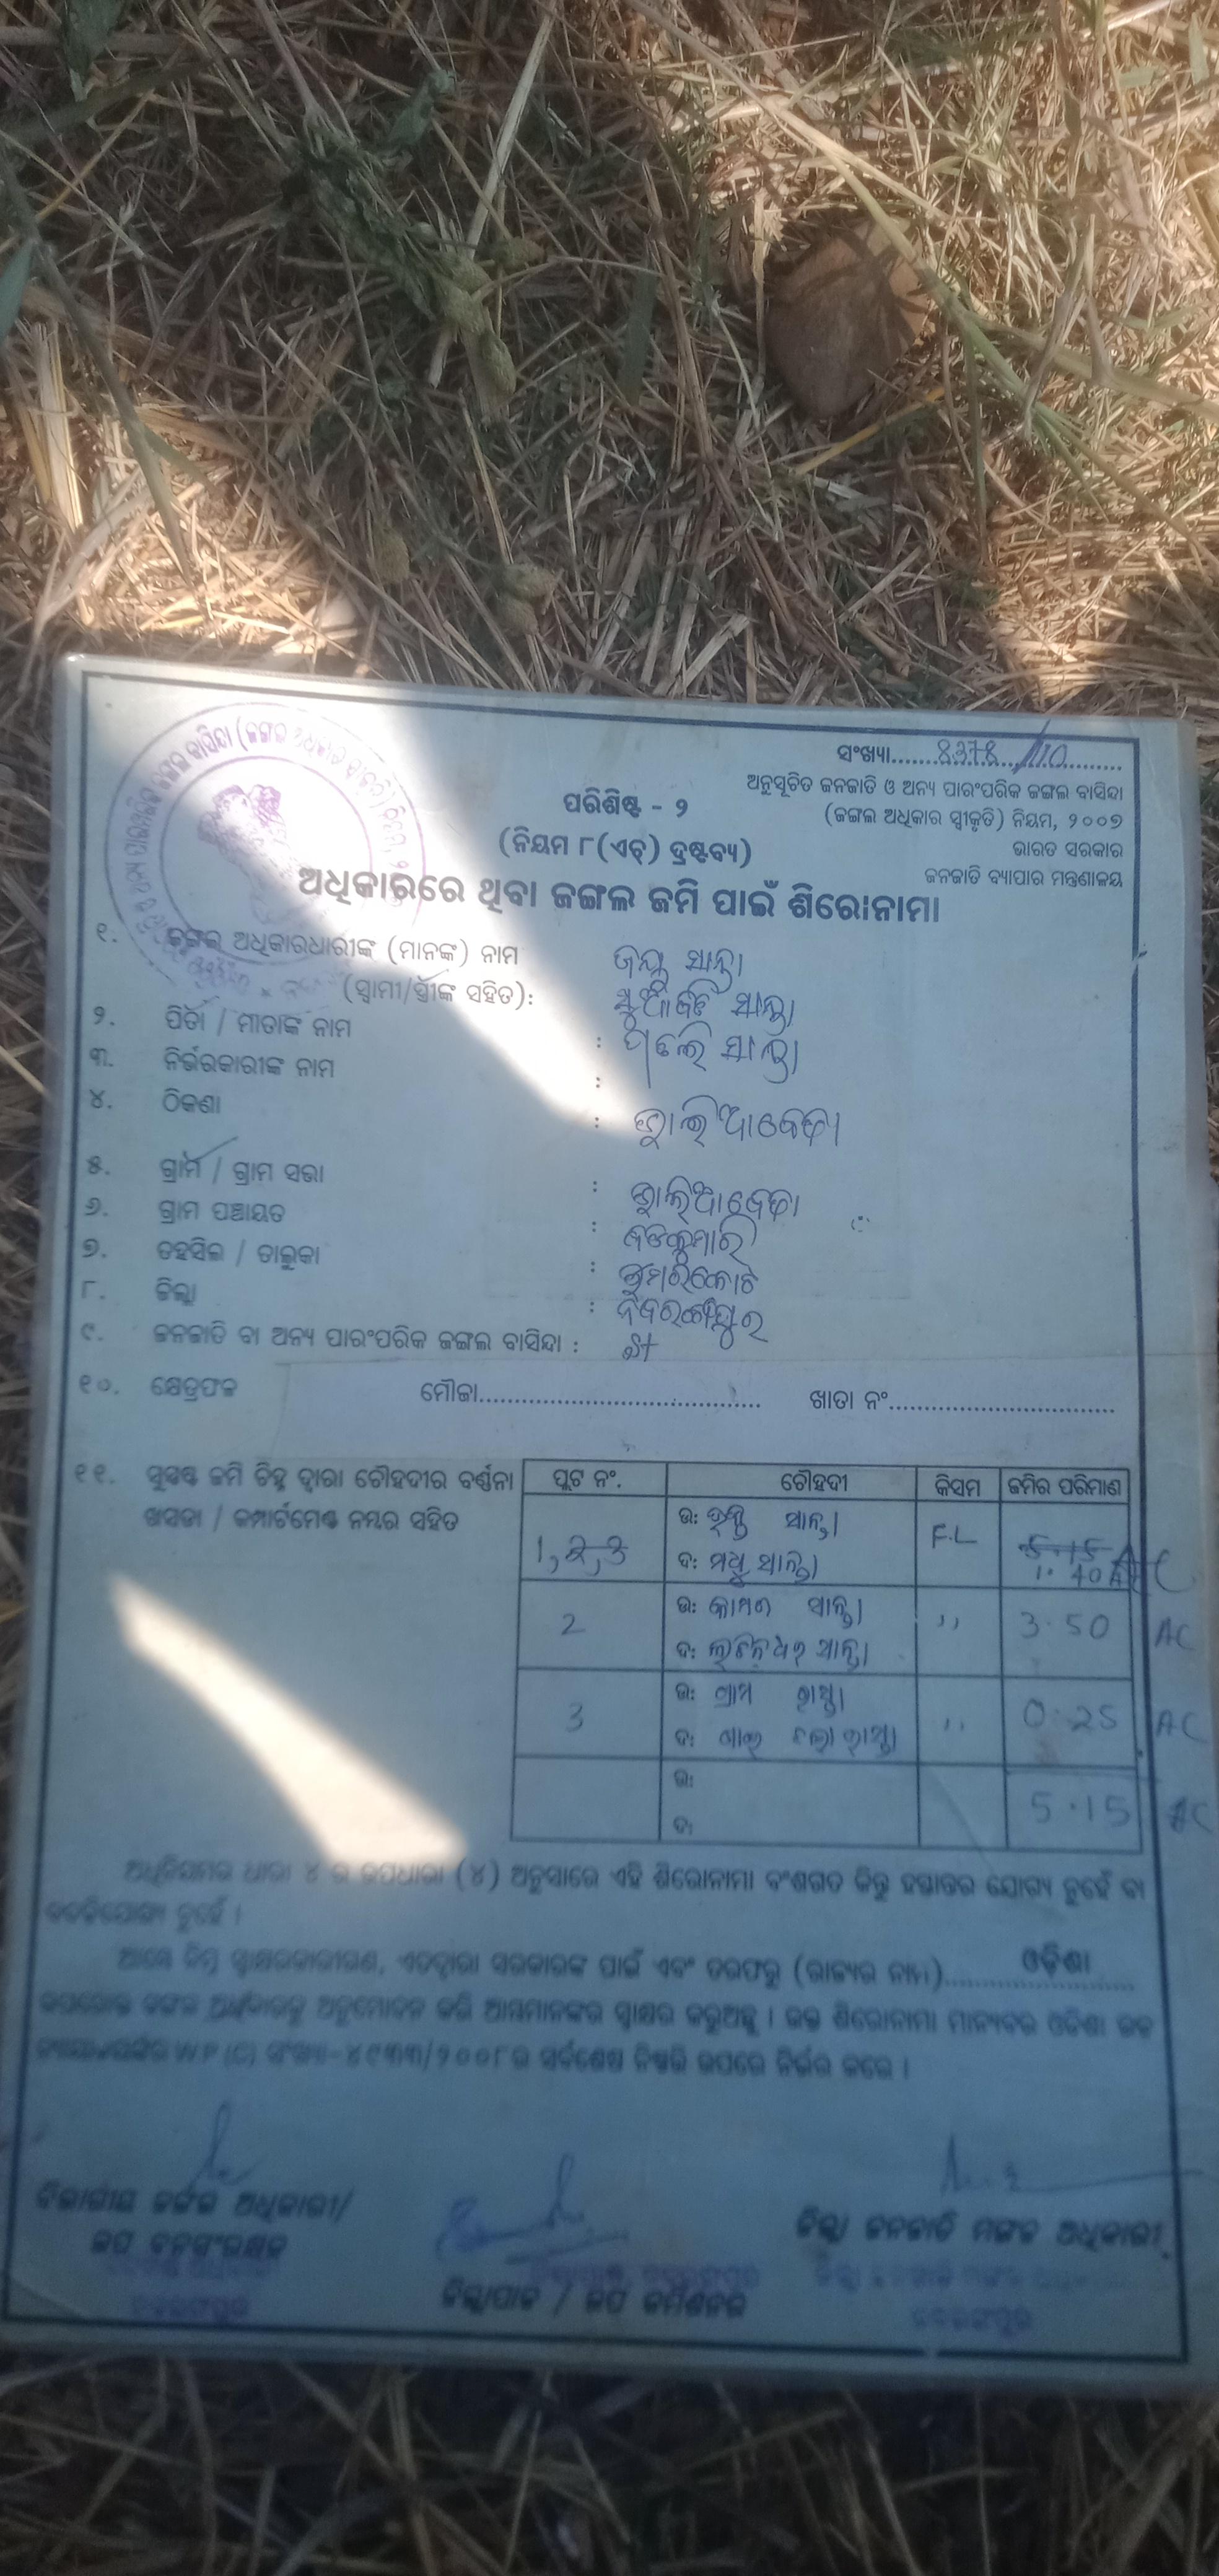 ସଂଖ୍ୟା........8378/10..........
ଅନୁସୂଚିତ ଜନଜାତି ଓ ଅନ୍ୟ ପାରଂପରିକ ଜଙ୍ଗଲ ବାସିନ୍ଦା
(ଜଙ୍ଗଲ ଅଧିକାର ସ୍ୱୀକୃତି) ନିୟମ, ୨୦୦୭
ଭାରତ ସରକାର
ଜନଜାତି ବ୍ୟାପାର ମନ୍ତ୍ରଣାଳୟ
ପରିଶିଷ୍ଟ - ୨
(ନିୟମ ୮(ଏଚ୍) ଦ୍ରଷ୍ଟବ୍ୟ)
ଅଧିକାରରେ ଥିବା ଜଙ୍ଗଲ ଜମି ପାଇଁ ଶିରୋନାମା
୧. ଜଙ୍ଗଲ ଅଧିକାରଧାରୀଙ୍କ (ମାନଙ୍କ) ନାମ ସାନ୍ତା
(ସ୍ୱାମୀ/ସ୍ତ୍ରୀଙ୍କ ସହିତ): ସାନ୍ତା
୨. ପିତା / ମାତାଙ୍କ ନାମ : ସାନ୍ତା
୩. ନିର୍ଭରକାରୀଙ୍କ ନାମ :
୪. ଠିକଣା : ଝାଲିଆବେଡା
୫. ଗ୍ରାମ / ଗ୍ରାମ ସଭା : ଝାଲିଆବେଡା
୬. ଗ୍ରାମ ପଞ୍ଚାୟତ : ବଡକୁମାରି
୭. ତହସିଲ / ତାଲୁକା : ଝୁମରକୋଟ
୮. ଜିଲ୍ଲା : ନବରଙ୍ଗପୁର
୯. ଜନଜାତି ବା ଅନ୍ୟ ପାରଂପରିକ ଜଙ୍ଗଲ ବାସିନ୍ଦା : ST
୧୦. କ୍ଷେତ୍ରଫଳ ମୌଜା........................................ ଖାତା ନଂ................................
୧୧. ସୁସ୍ପଷ୍ଟ ଜମି ଚିହ୍ନ ଦ୍ୱାରା ଚୌହଦୀର ବର୍ଣ୍ଣନା
ଖସଡା / କମ୍ପାର୍ଟମେଣ୍ଟ ନମ୍ବର ସହିତ
ପ୍ଲଟ ନଂ. ଚୌହଦୀ କିସମ ଜମିର ପରିମାଣ
1, 2, 3 ଉ: ସାନ୍ତା F.L 5.15 AC
ଦ: ମଧୁ ସାନ୍ତା 1.40 AC
2 ଉ: ସାନ୍ତା ,, 3.50 AC
ଦ: ସାନ୍ତା
3 ଉ: ଗ୍ରାମ ରାସ୍ତା ,, 0.25 AC
ଦ: ଗାଈ ରାସ୍ତା
ଉ: 5.15 AC
ଦ:
ଅଧିନିୟମର ଧାରା ୪ ର ଉପଧାରା (୪) ଅନୁସାରେ ଏହି ଶିରୋନାମା ବଂଶଗତ କିନ୍ତୁ ହସ୍ତାନ୍ତର ଯୋଗ୍ୟ ନୁହେଁ ବା
ବଦଳିଯୋଗ୍ୟ ନୁହେଁ ।
ଆମ୍ଭେ ନିମ୍ନ ସ୍ୱାକ୍ଷରକାରୀଗଣ, ଏତଦ୍ୱାରା ସରକାରଙ୍କ ପାଇଁ ଏବଂ ତରଫରୁ (ରାଜ୍ୟର ନାମ)......ଓଡ଼ିଶା......
ଉପରୋକ୍ତ ଜଙ୍ଗଲ ଅଧିକାରକୁ ଅନୁମୋଦନ କରି ଆମ୍ଭମାନଙ୍କର ସ୍ୱାକ୍ଷର କରୁଅଛୁ । ଉକ୍ତ ଶିରୋନାମା ମାନ୍ୟବର ଓଡିଶା ଉଚ୍ଚ
ନ୍ୟାୟାଳୟଙ୍କର W.P.(C) ସଂଖ୍ୟା-୪୯୩୩/୨୦୦୮ର ସର୍ବଶେଷ ନିଷ୍ପତ୍ତି ଉପରେ ନିର୍ଭର କରେ ।
ବିଭାଗୀୟ ଜଙ୍ଗଲ ଅଧିକାରୀ/
ଉପ ବନସଂରକ୍ଷକ
ଜିଲ୍ଲାପାଳ / ଉପ କମିଶନର
ଜିଲ୍ଲା ଜନଜାତି ମଙ୍ଗଳ ଅଧିକାରୀ